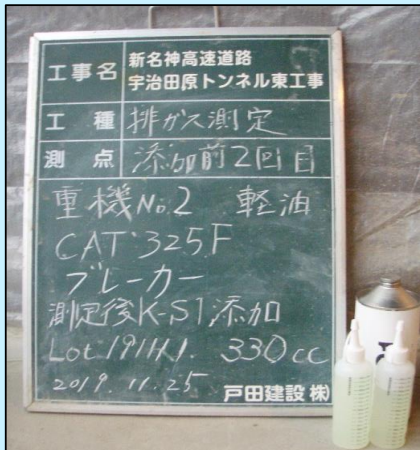 工事名 新名神高速道路
宇治田原トンネル東工事
工種 排ガス測定
測点 添加前2回目
重機No.2 軽油
CAT 325F
ブレーカー
測定後K-S1添加
Lot 191HJ. 330cc
2019.11.25 戸田建設(株)